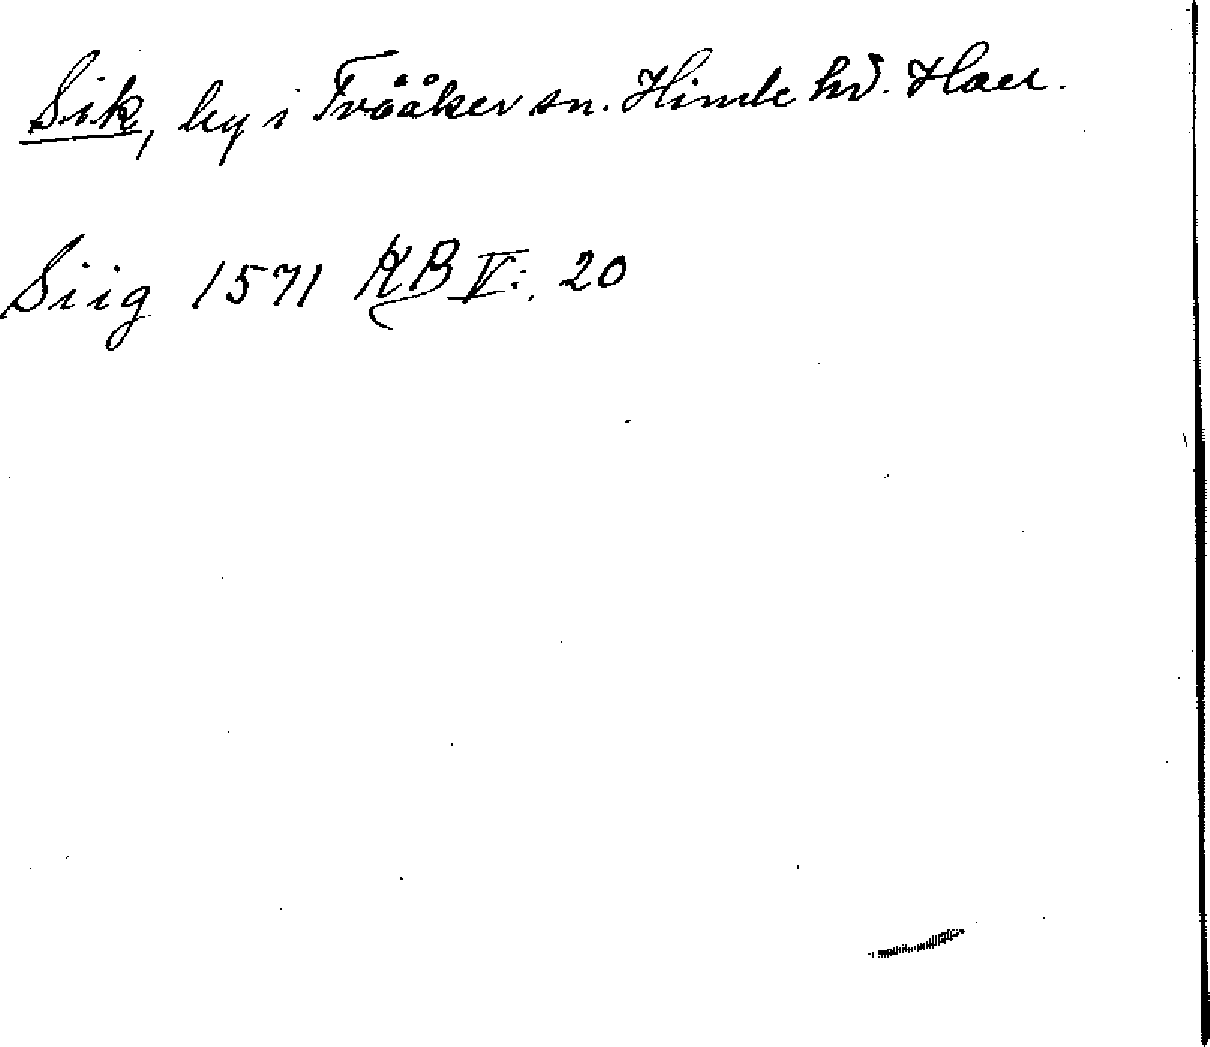 Sik, by i Tvååker sn. Himle hd. Hall.
Siig 1571 KB V: 20